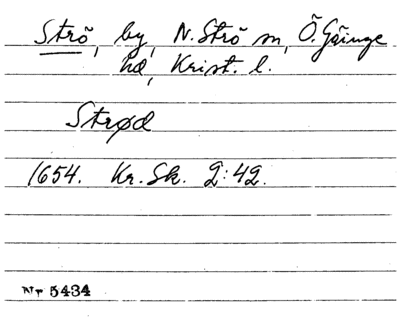 Strö, by, N. Strö sn, Ö. Göinge
hd, Krist. l.
Strød
1654. Kr. Sk. 2:42.
Nr 5434